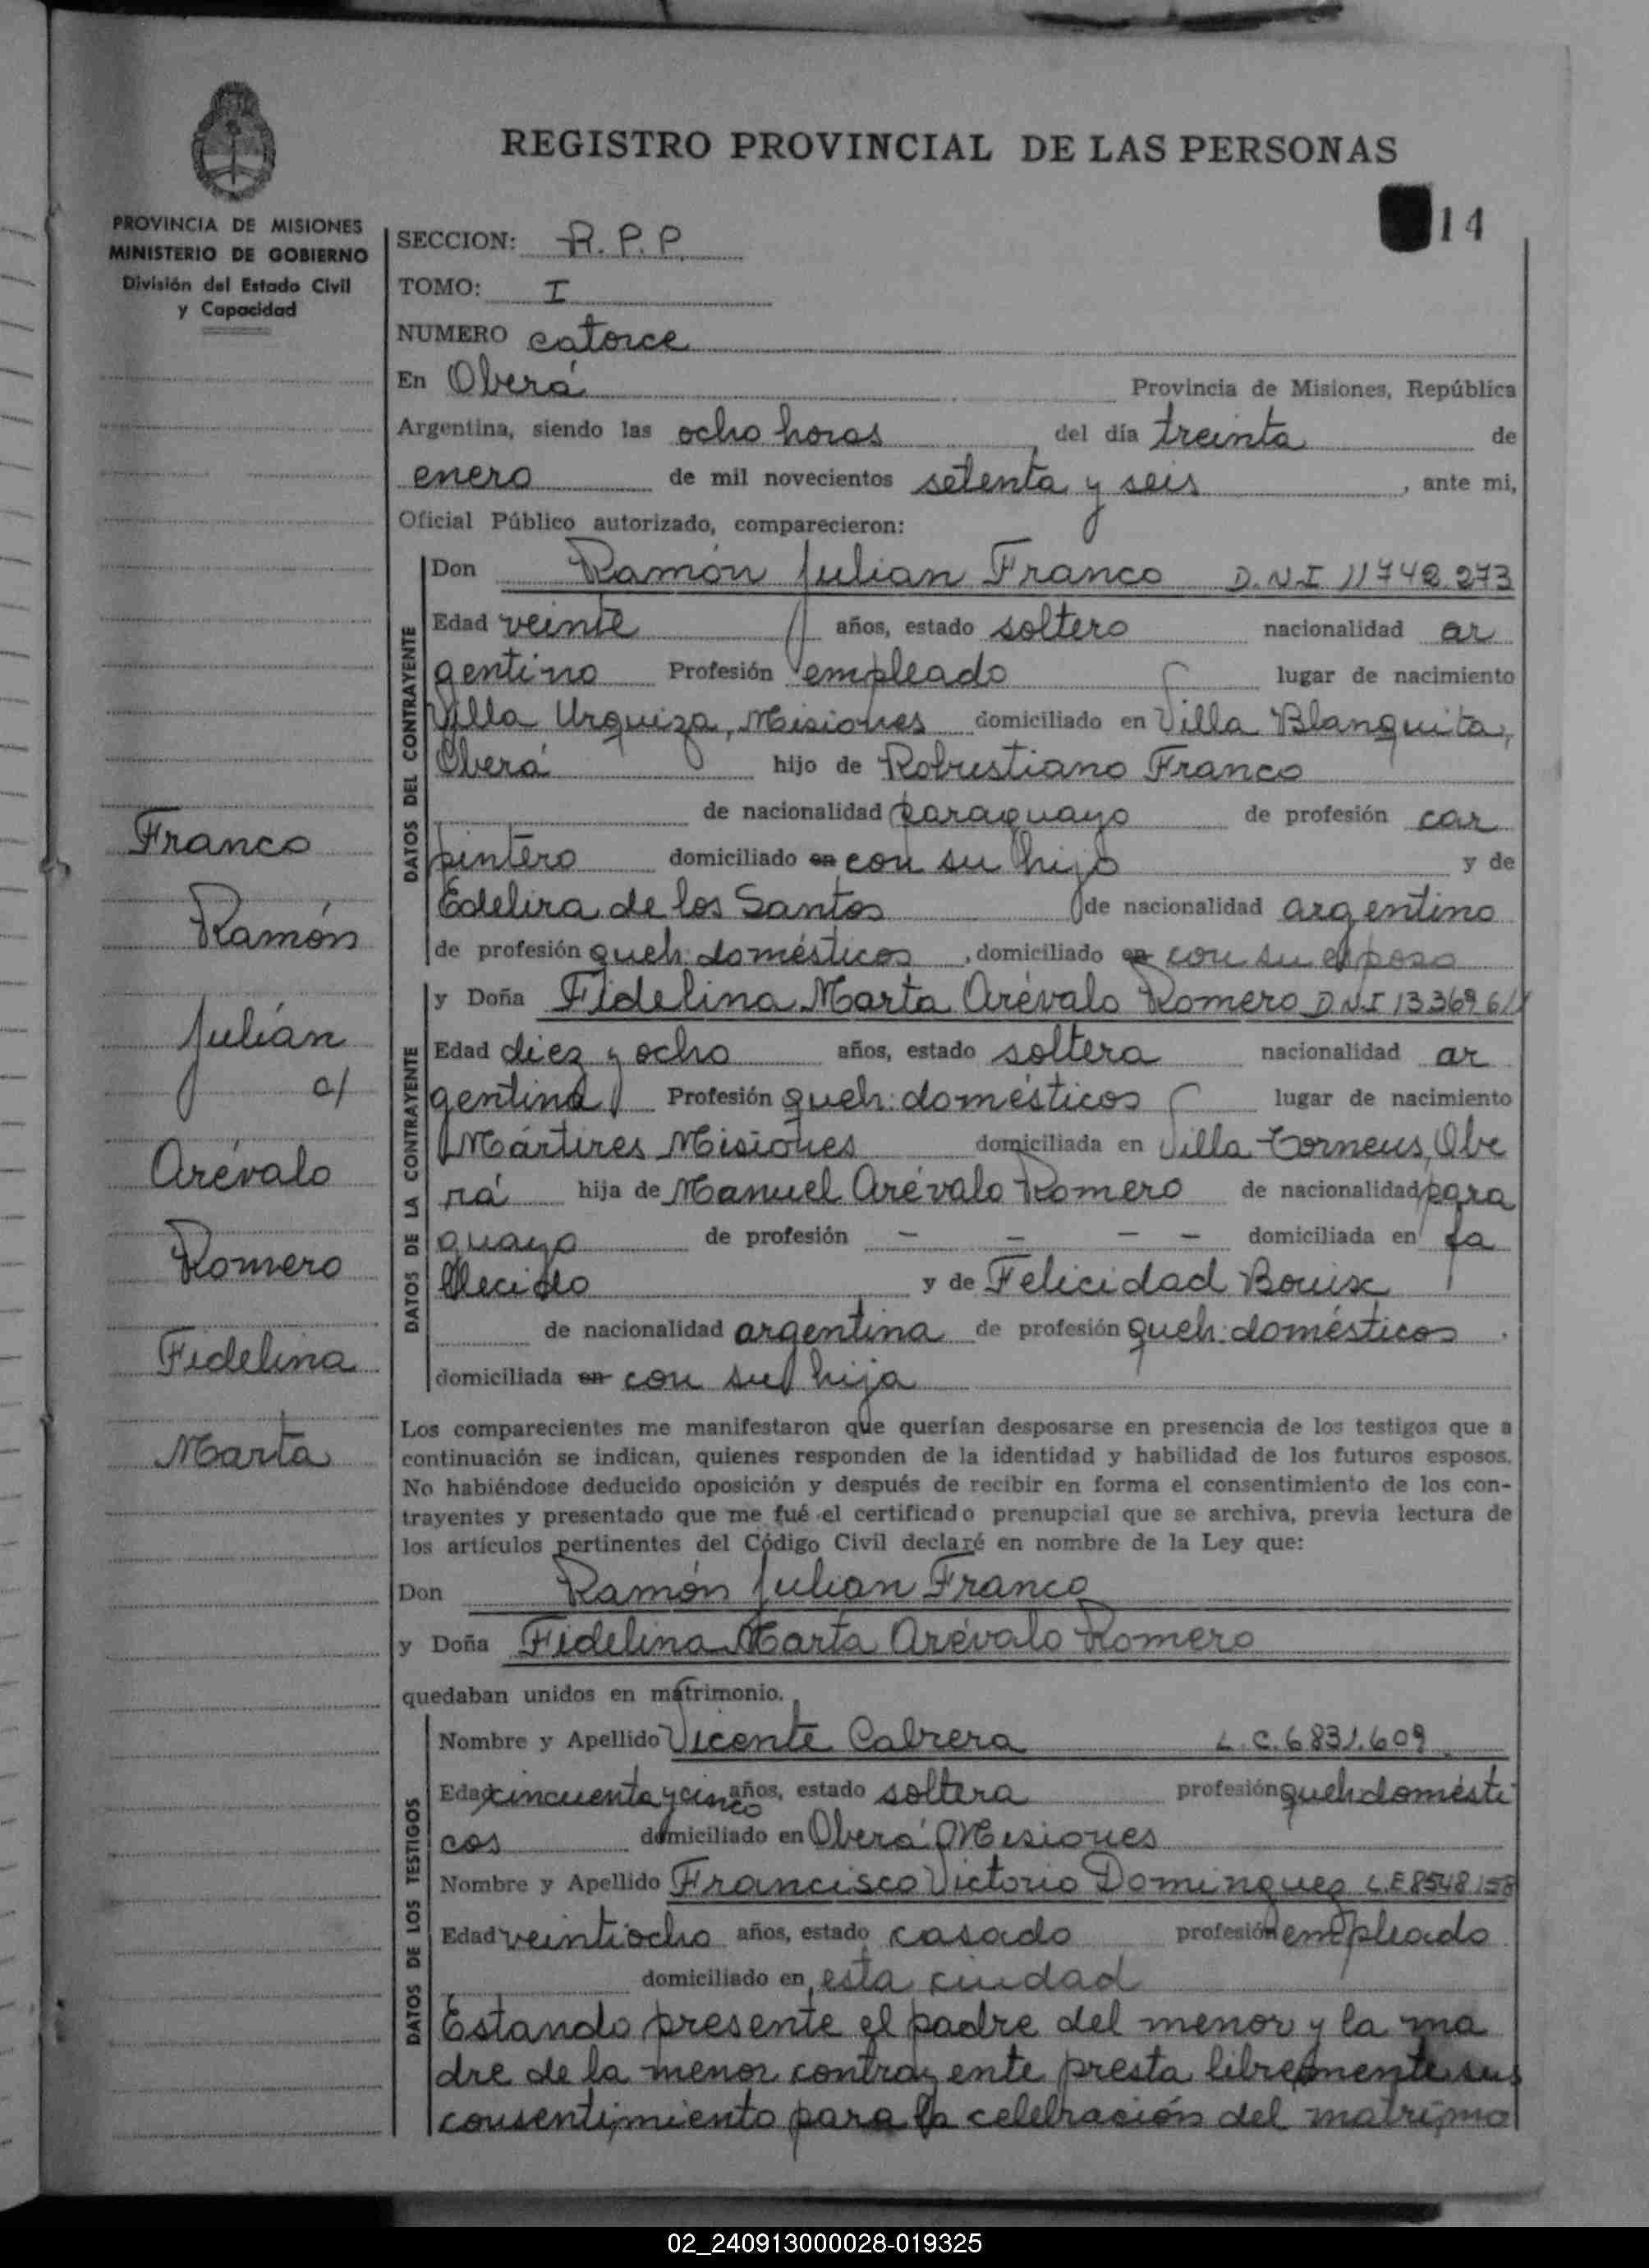 REGISTRO PROVINCIAL DE LAS PERSONAS
14
PROVINCIA DE MISIONES
MINISTERIO DE GOBIERNO
División del Estado Civil
y Capacidad
SECCION: R.P.P.
TOMO: I
NUMERO catorce
En Oberá Provincia de Misiones, República
Argentina, siendo las ocho horas, del día treinta de
enero de mil novecientos setenta y seis, ante mi,
Oficial Público autorizado, comparecieron:
DATOS DEL CONTRAYENTE
Don Ramón Julian Franco D.N.I 11742.273
Edad veinte años, estado soltero nacionalidad ar
gentino Profesión empleado lugar de nacimiento
Villa Urquiza, Misiones domiciliado en Villa Blanquita,
Oberá hijo de Robustiano Franco
de nacionalidad paraguayo de profesión car
pintero domiciliado en con su hijo y de
Edelira de los Santos de nacionalidad argentino
de profesión queh: domésticos, domiciliado en con su esposo
DATOS DE LA CONTRAYENTE
y Doña Fidelina Marta Arévalo Romero D.N.I 13369 6
Edad diez y ocho años, estado soltera nacionalidad ar
gentina Profesión queh: domésticos lugar de nacimiento
Mártires Misiones domiciliada en Villa Obe
rá hija de Manuel Arévalo Romero de nacionalidad para
guayo de profesión - - - - domiciliada en fa
llecido y de Felicidad Bouix
de nacionalidad argentina de profesión queh: domésticos.
domiciliada en con su hija
Franco
Ramón
Julián
c/
Arévalo
Romero
Fidelina
Marta
Los comparecientes me manifestaron que querían desposarse en presencia de los testigos que a
continuación se indican, quienes responden de la identidad y habilidad de los futuros esposos.
No habiéndose deducido oposición y después de recibir en forma el consentimiento de los con-
trayentes y presentado que me fué el certificado prenupcial que se archiva, previa lectura de
los artículos pertinentes del Código Civil declaré en nombre de la Ley que:
Don Ramón Julian Franco
y Doña Fidelina Marta Arévalo Romero
quedaban unidos en matrimonio.
DATOS DE LOS TESTIGOS
Nombre y Apellido Vicente Cabrera L.C.6831.609
Edad cincuenta y cinco años, estado soltera profesión queh domésti
cos domiciliado en Oberá Misiones
Nombre y Apellido Francisco Victorio Dominguez L.E 8548158
Edad veintiocho años, estado casado profesión empleado
domiciliado en esta ciudad
Estando presente el padre del menor y la ma
dre de la menor contrayente presta libremente sus
consentimiento para la celebración del matrimo
02_240913000028-019325